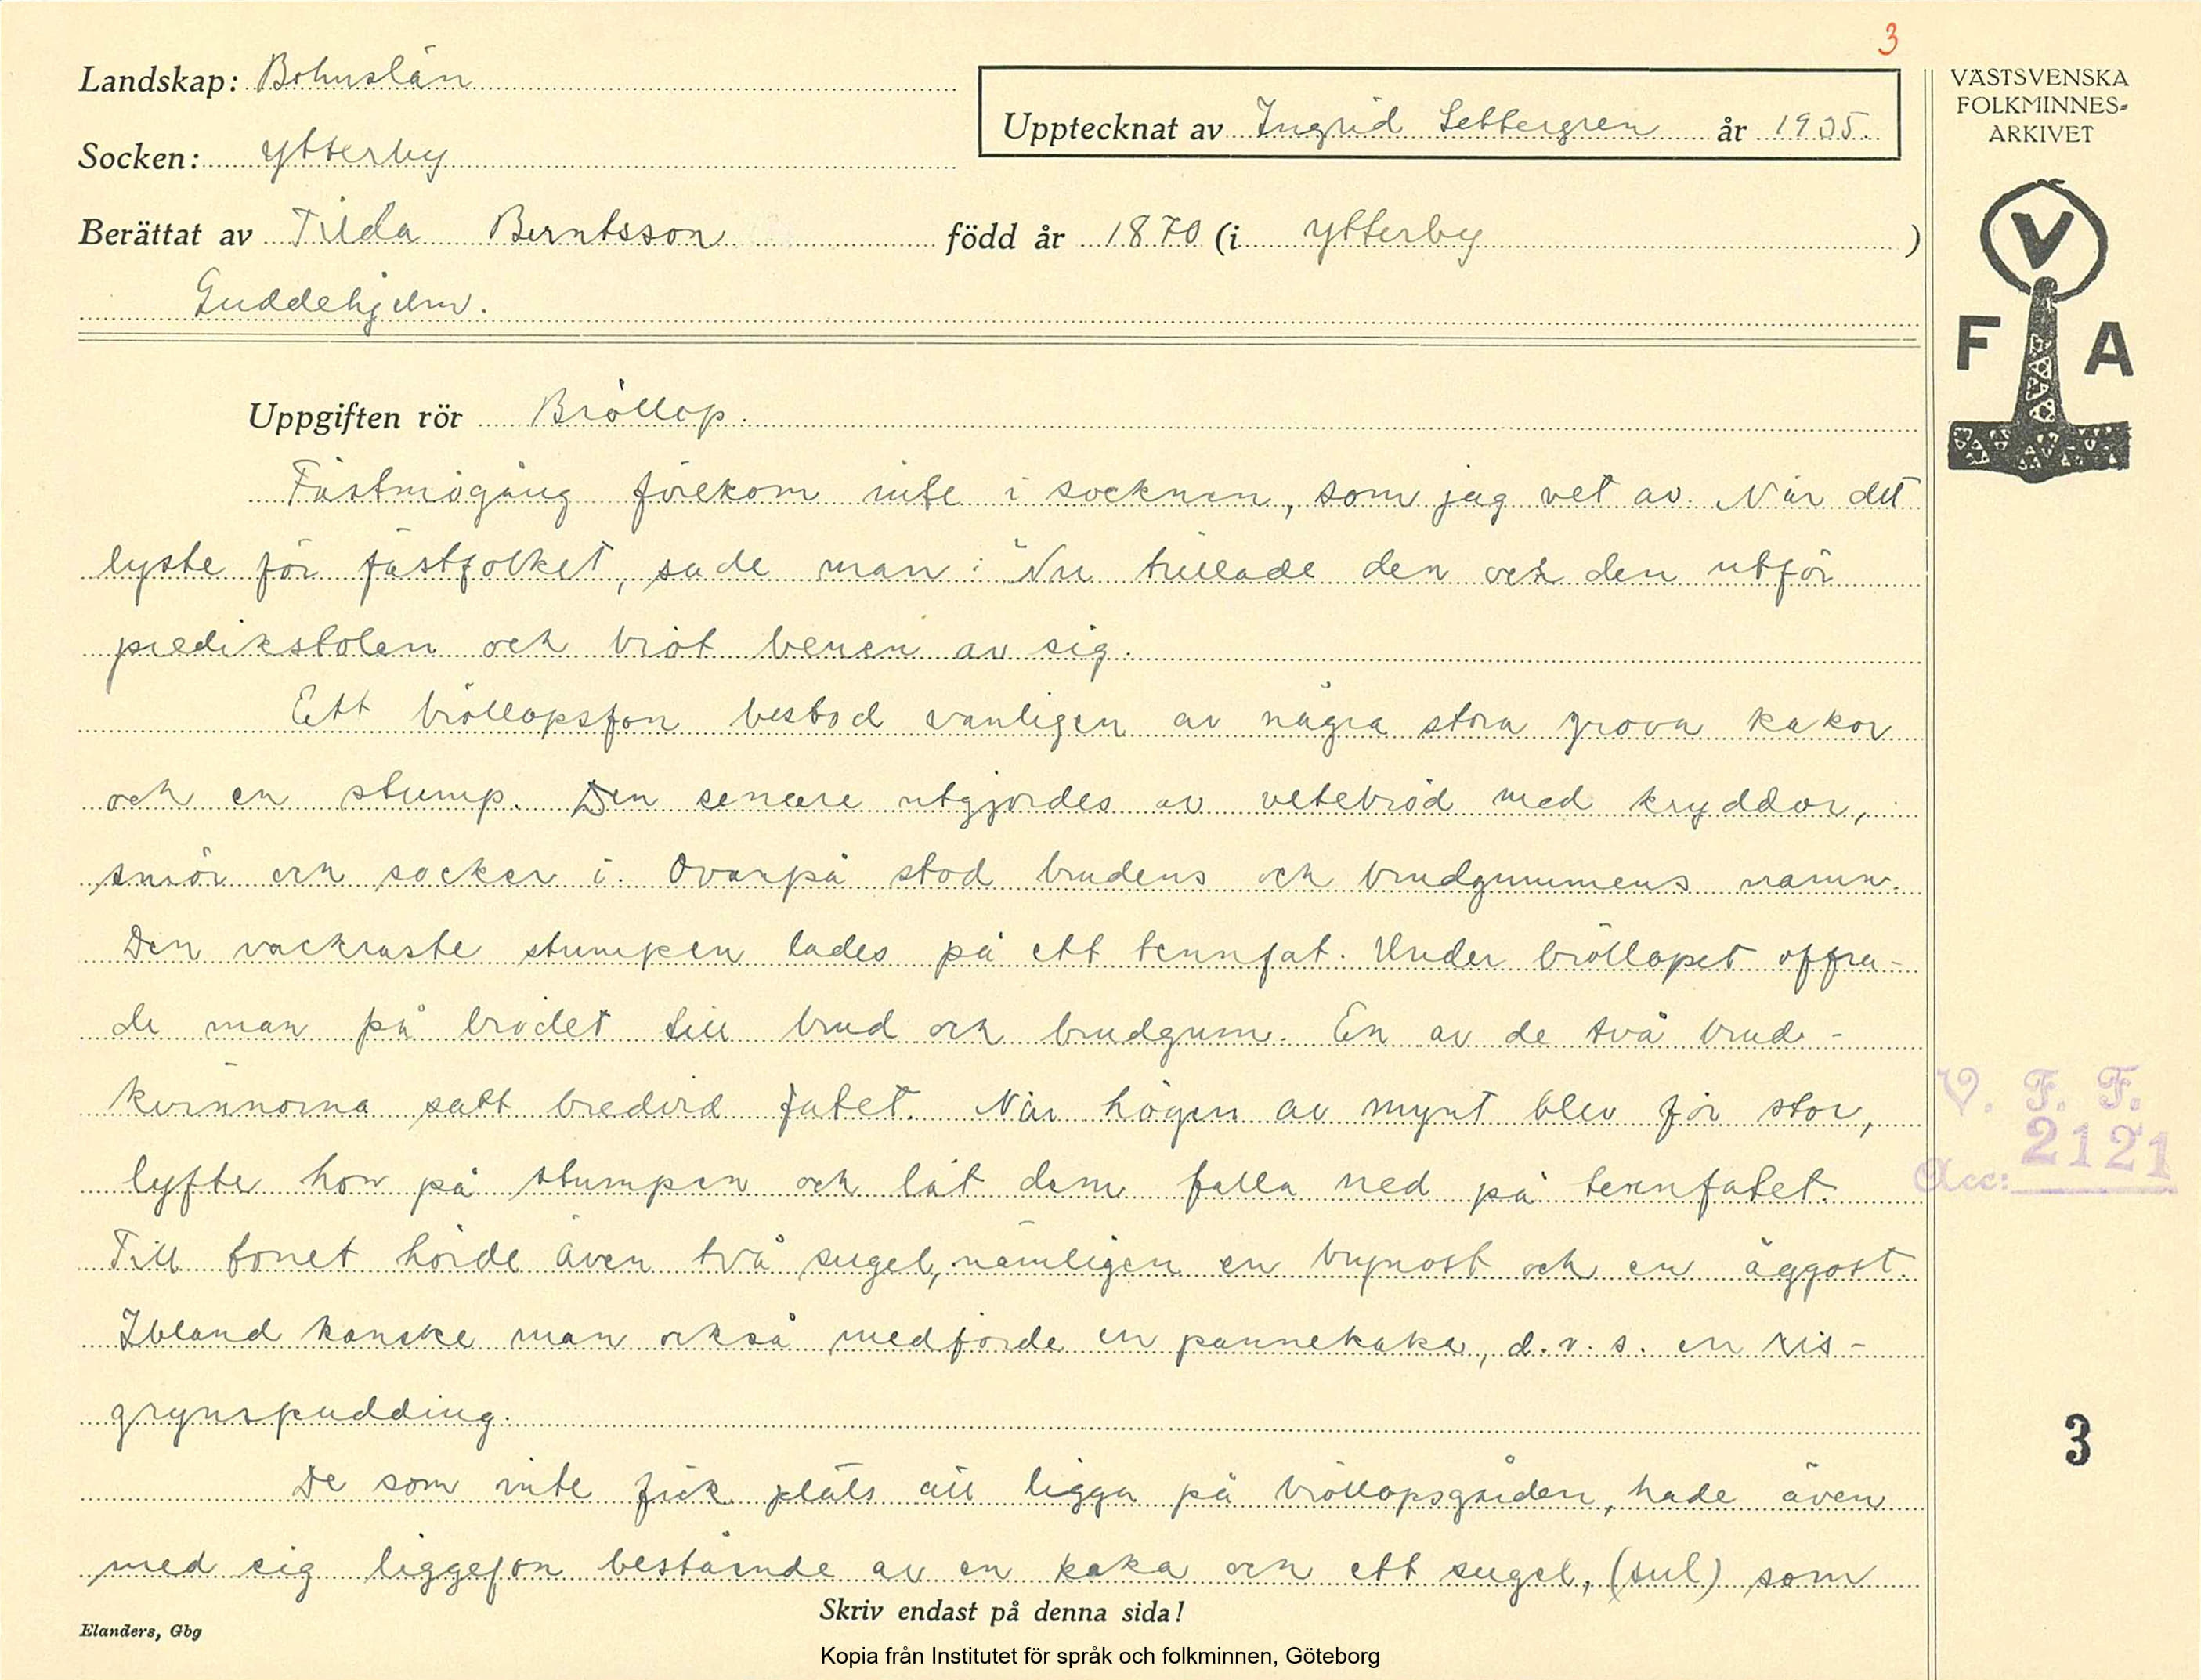 3
Landskap: Bohuslän
Upptecknat av Ingrid Settergren år 1935.
Socken: Ytterby
Berättat av Tilda Berntsson född år 1870 (i Ytterby )
Guddehjelm.
VÄSTSVENSKA
FOLKMINNES=
ARKIVET
V
F A
Uppgiften rör Bröllop.
Fästmögång förekom inte i socknen, som jag vet av. När det
lyste för fästfolket, sade man: "Nu trillade den och den utför
predikstolen och bröt benen av sig.
Ett bröllopsfon bestod vanligen av några stora grova kakor
och en stump. Den senare utgjordes av vetebröd med kryddor,
smör och socker i. Ovanpå stod brudens och brudgummens namn.
Den vackraste stumpen lades på ett tennfat. Under bröllopet offra-
de man på brödet till brud och brudgum. En av de två brud-
kvinnorna satt bredvid fatet. När högen av mynt blev för stor,
lyfte hon på stumpen och lät dem falla ned på tennfatet.
Till fonet hörde även två sugel, nämligen en bupost och en äggost.
Ibland kanske man också medförde en pannekaka, d.v.s. en ris-
grynspudding.
De som inte fick plats att ligga på bröllopsgården, hade även
med sig liggefon bestående av en kaka och ett sugel, (sul) som
V. F. F.
Acc: 2121
3
Skriv endast på denna sida!
Elanders, Gbg
Kopia från Institutet för språk och folkminnen, Göteborg